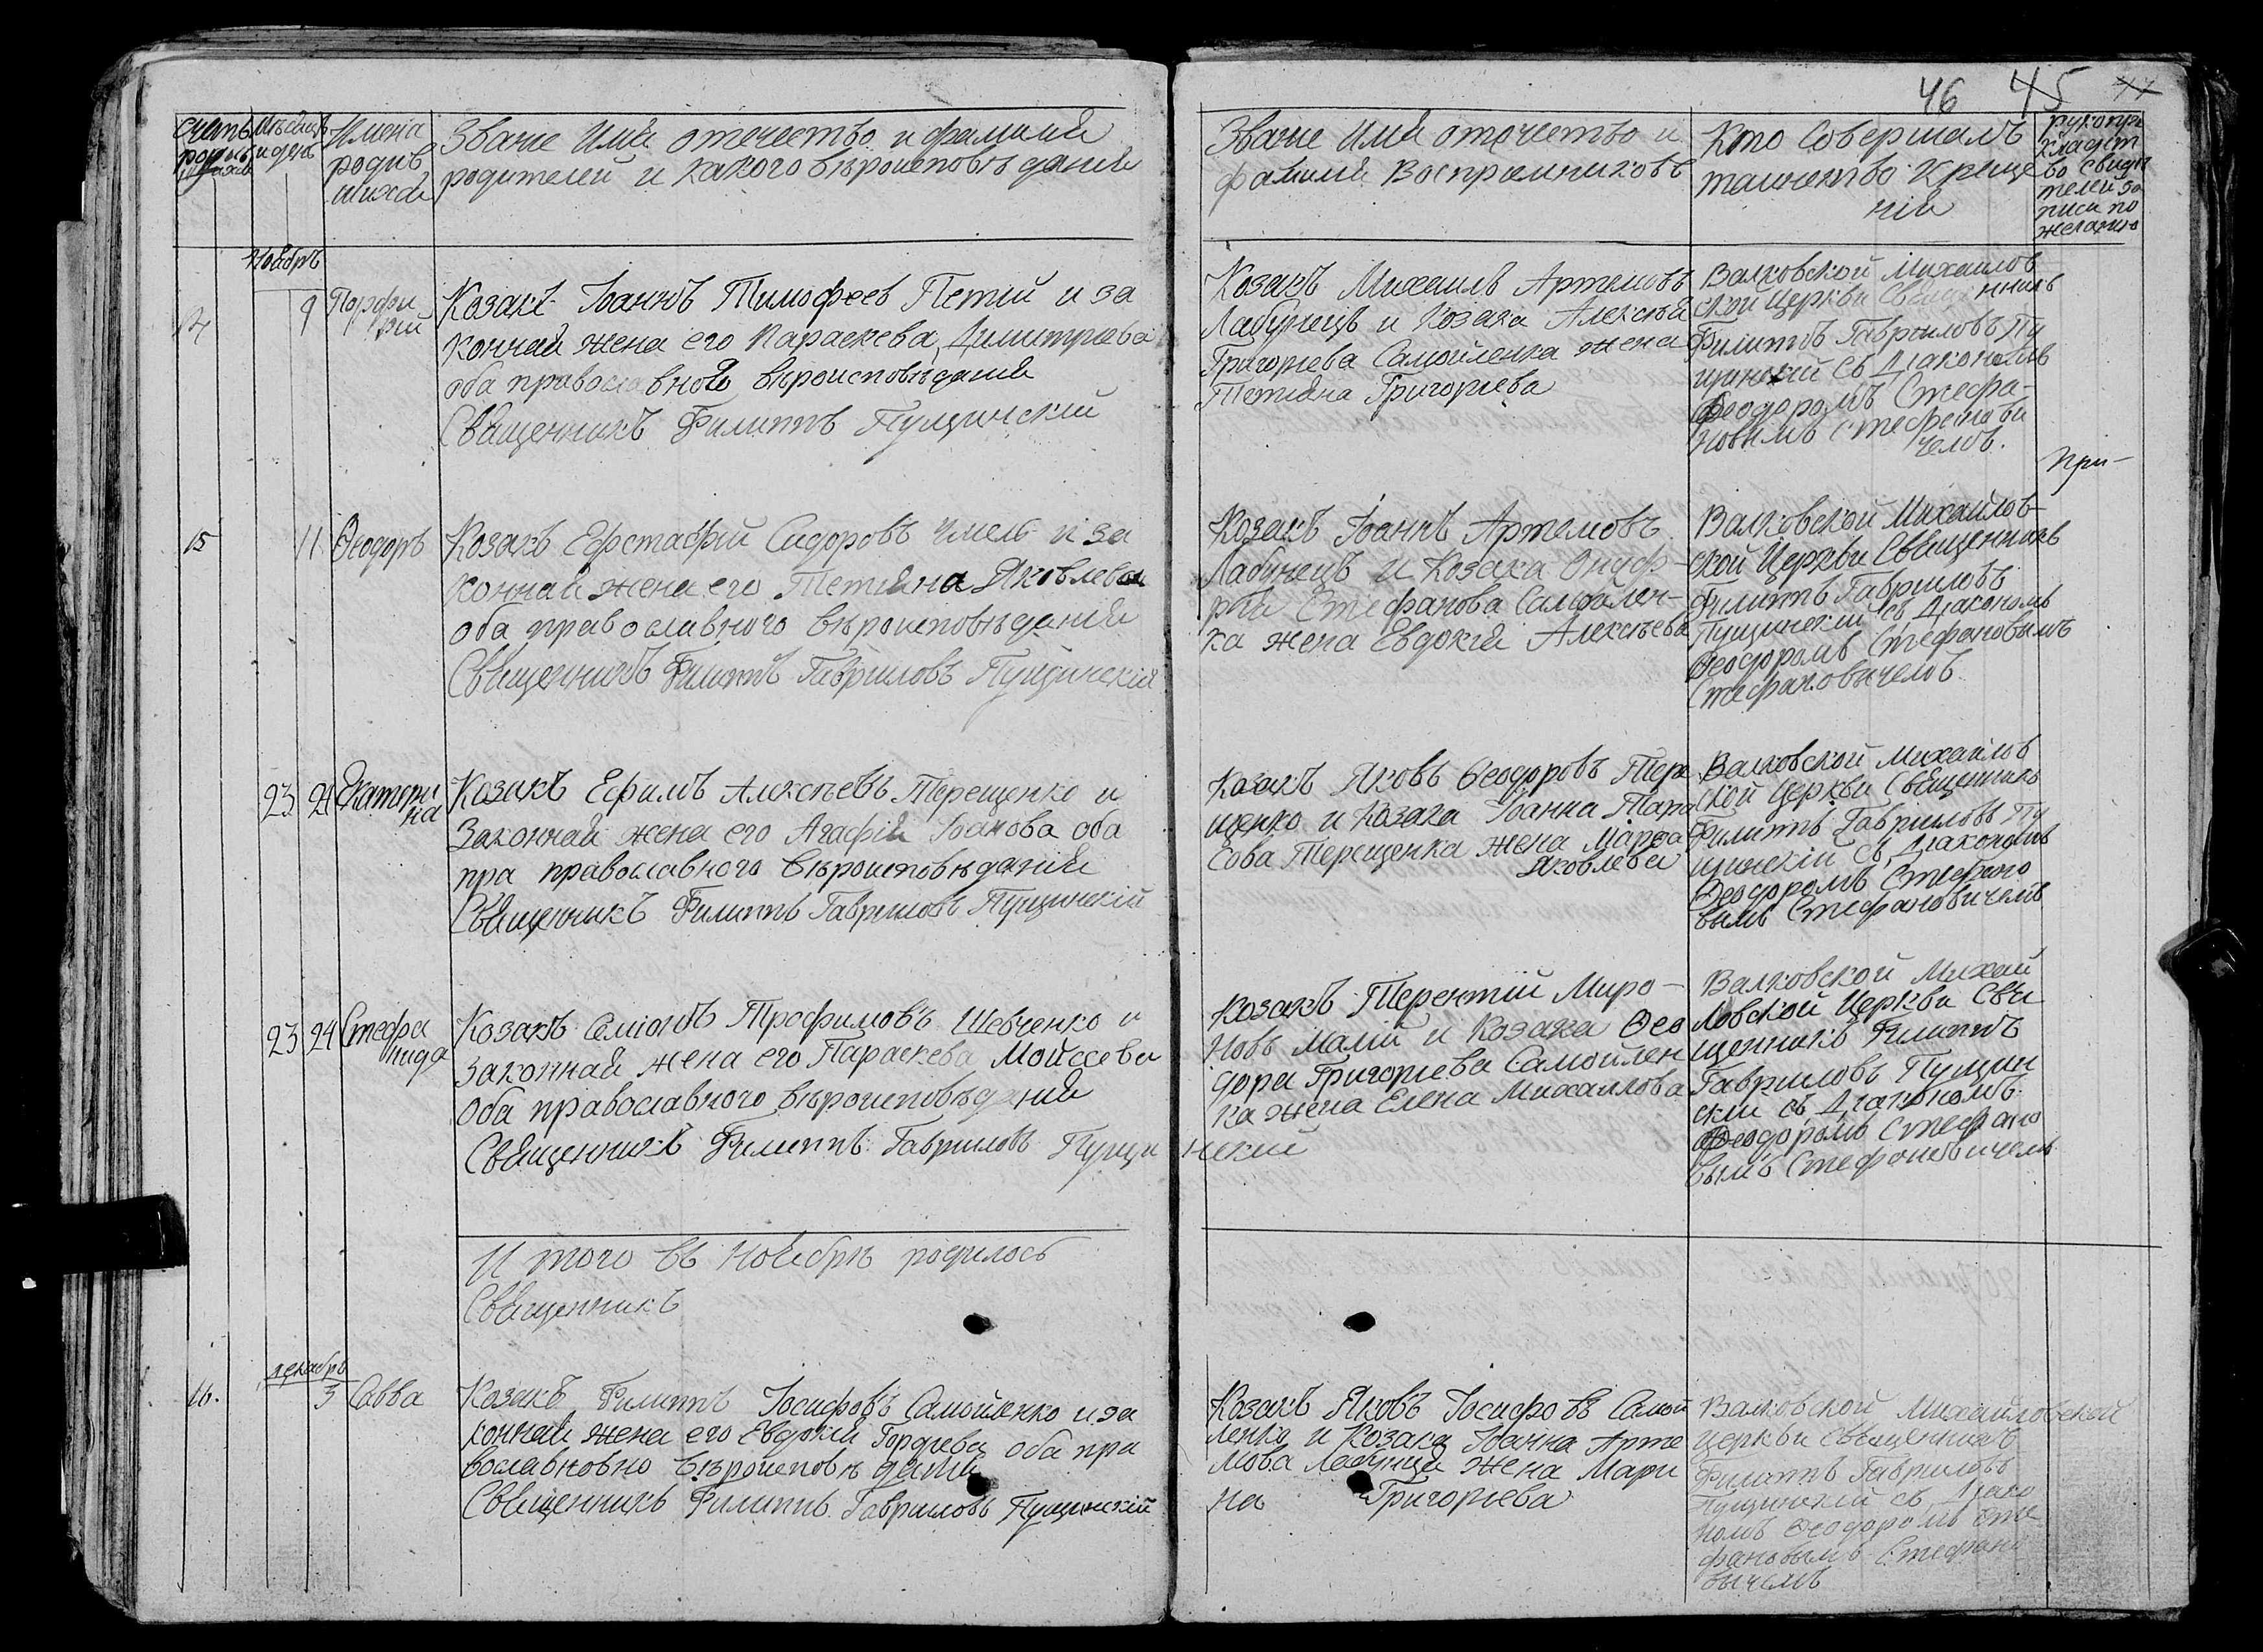 46 45 44
Счетъ Мѣсяцъ Имена Званіе Имя отечество и фамилія
родив и день родив родителей и какого вѣроисповѣданія
шихся
Званіе Имя отечество и
фамилія Воспріемниковъ
Кто Совершалъ
таинство Креще
нія
рукопри
кладст
во свидѣ
телей за
писи по
желанію
Ноябрь
14 9 Порфи
рій
Козакъ Іоаннъ Тимофеев Петій и за
конная жена его Параскева Димитріева
оба православной вѣроисповѣданія
Священникъ Филиппъ Пущинскій
Козакъ Михаилъ Артемовъ
Лабунецъ и Козака Алексѣя
Григоріева Самойленка жена
Тетяна Григоріева
Валковской Михаилов
ской Церкви Священникъ
Филиппъ Гавриловъ Пу
щинскій съ Діакономъ
Феодоромъ Стефа-
новымъ Стефанови
чемъ.
При-
15 11 Ѳеодоръ
Козакъ Ефстафій Сидоровъ Чмель и за
конная жена его Тетяна Яковлева
оба православного вѣроисповѣданія
Священникъ Филиппъ Гавриловъ Пущинскій
Козакъ Іоаннъ Артемовъ
Лабунецъ и Козака Онуф-
рія Стефанова Самойлен-
ка жена Евдокія Алексѣева
Валковской Михайлов-
ской Церкви Священникъ
Филиппъ Гавриловъ
Пущинскій съ Діакономъ
Ѳеодоромъ Стефановымъ
Стефановичемъ
23 24 Екатери
на
Козакъ Ефимъ Алексѣевъ Терещенко и
Законная жена его Агафія Іванова оба
пра православного вѣроисповѣданія
Священникъ Филиппъ Гавриловъ Пущинскій
Козакъ Яковъ Ѳеодоровъ Тере
щенко и Козака Іоанна Тара
сова Терещенка жена Марѳа
Яковлева
Валковской Михайлов
ской Церкви Священникъ
Филиппъ Гавриловъ Пу
щинскій съ Діакономъ
Ѳеодоромъ Стефано
вымъ Стефановичемъ
23 24 Стефа
нида
Козакъ Семіонъ Трофимовъ Шевченко и
законная жена его Параскева Мойсеева
оба православного вѣроисповѣданія
Священникъ Филиппъ Гавриловъ Пущи нский
Козакъ Терентій Миро-
новъ Малій и Козака Ѳео
дора Григоріева Самойлен
ка жена Елена Михаилова
Валковской Михай
ловской Церкви Свя
щенникъ Филиппъ
Гавриловъ Пущин
ски съ Діакономъ
Ѳеодоромъ Стефано
вымъ Стефановичемъ
И того въ Ноябрѣ родилось
Священникъ
декабрь
16. 3 Савва
Козакъ Филиппъ Іосифовъ Самойленко и за
конная жена его Евдокія Гордіева оба пра
вославновно вѣроисповѣданія
Священникъ Филиппъ Гавриловъ Пущинскій
Козакъ Яковъ Іосифовъ Самой
ленко и Козака Іоанна Арте
мова Лабунца жена Мари
на Григоріева
Валковской Михайловской
церкви священникъ
Филиппъ Гавриловъ
Пущинскій съ Діако
номъ Ѳеодоромъ Сте
фановымъ Стефано
вичемъ